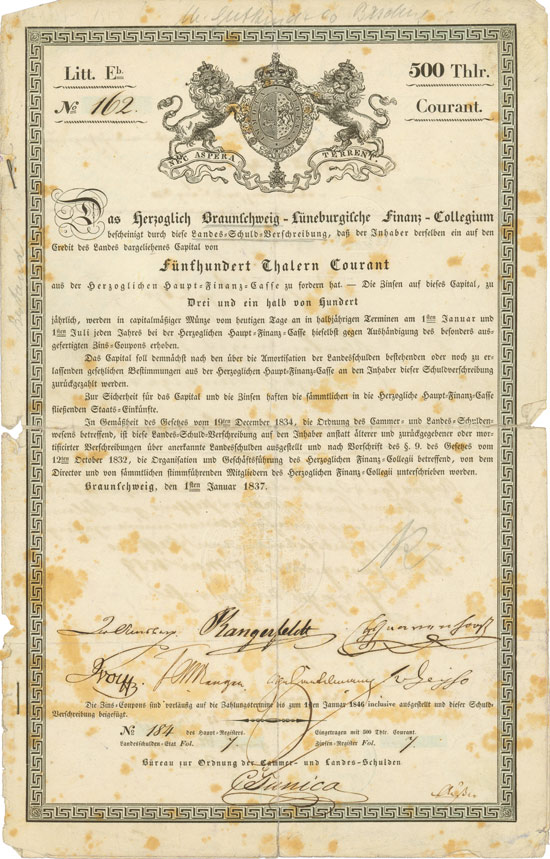 Litt. Eb.
500 Thlr.
No 162.
Courant.
NEC ASPERA TERRENT.
Das Herzoglich Braunschweig-Lüneburgische Finanz-Collegium
bescheinigt durch diese Landes-Schuld-Verschreibung, daß der Inhaber derselben ein auf den
Credit des Landes dargeliehenes Capital von
Fünfhundert Thalern Courant
aus der Herzoglichen Haupt-Finanz-Casse zu fordern hat. — Die Zinsen auf dieses Capital, zu
Drei und ein halb von Hundert
jährlich, werden in capitalmäßiger Münze vom heutigen Tage an in halbjährigen Terminen am 1sten Januar und
1sten Juli jeden Jahres bei der Herzoglichen Haupt-Finanz-Casse hieselbst gegen Aushändigung des besonders aus-
gefertigten Zins-Coupons erhoben.
Das Capital soll demnächst nach den über die Amortisation der Landesschulden bestehenden oder noch zu er-
lassenden gesetzlichen Bestimmungen aus der Herzoglichen Haupt-Finanz-Casse an den Inhaber dieser Schuldverschreibung
zurückgezahlt werden.
Zur Sicherheit für das Capital und die Zinsen haften die sämmtlichen in die Herzogliche Haupt-Finanz-Casse
fließenden Staats-Einkünfte.
In Gemäßheit des Gesetzes vom 19ten December 1834, die Ordnung des Cammer- und Landes-Schulden-
wesens betreffend, ist diese Landes-Schuld-Verschreibung auf den Inhaber anstatt älterer und zurückgegebener oder mor-
tificirter Verschreibungen über anerkannte Landesschulden ausgestellt und nach Vorschrift des §. 9. des Gesetzes vom
12ten October 1832, die Organisation und Geschäftsführung des Herzoglichen Finanz-Collegii betreffend, von dem
Director und von sämmtlichen stimmführenden Mitgliedern des Herzoglichen Finanz-Collegii unterschrieben worden.
Braunschweig, den 1sten Januar 1837.
Rangerfeldt
Die Zins-Coupons sind vorläufig auf die Zahlungstermine bis zum 1sten Januar 1846 inclusive ausgestellt und dieser Schuld-
Verschreibung beigefügt.
No 184 des Haupt-Registers.
Landesschulden-Etat Fol. 7
Eingetragen mit 500 Thlr. Courant.
Zinsen-Register Fol. 7
Büreau zur Ordnung der Cammer- und Landes-Schulden